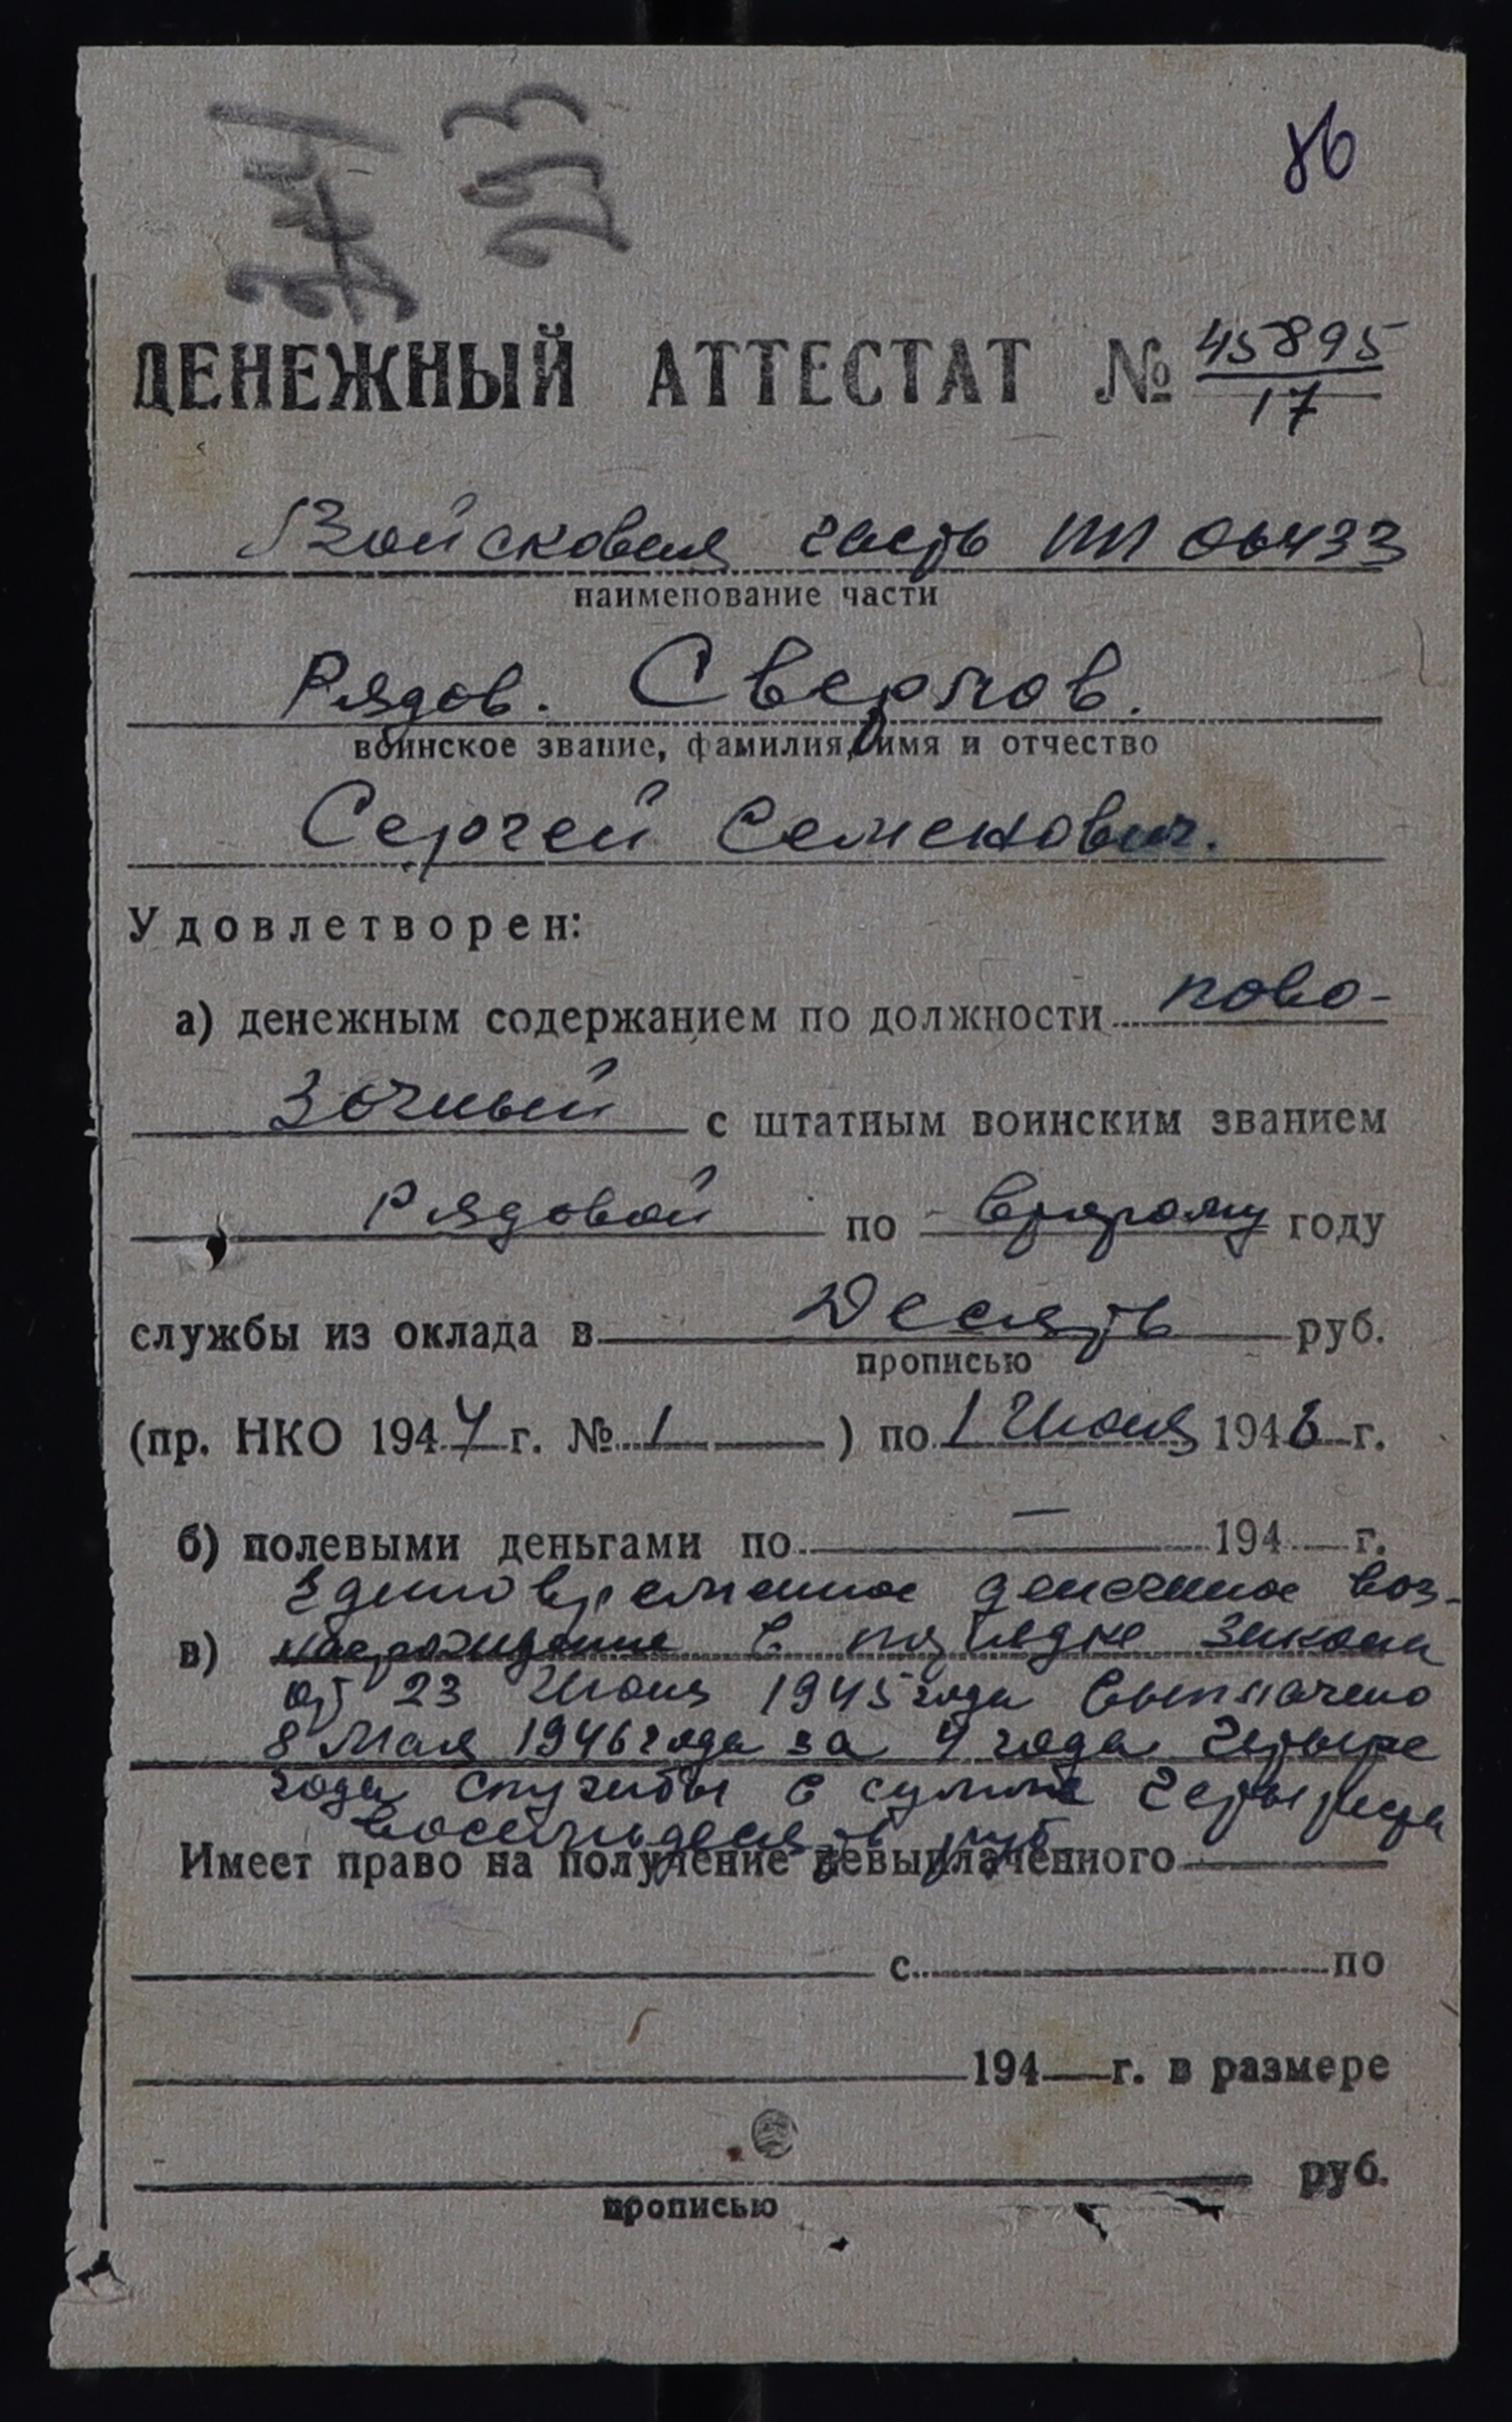 86
ДЕНЕЖНЫЙ АТТЕСТАТ № 45895/17
Войсковая часть ПП 06433
наименование части
Рядов. Сверчков.
воинское звание, фамилия, имя и отчество
Сергей Семенович.
Удовлетворен:
а) денежным содержанием по должности пово-
зочный с штатным воинским званием
Рядовой по второму году
службы из оклада в Десять руб.
прописью
(пр. НКО 1944 г. № 1 ) по 1 Июня 1946 г.
б) полевыми деньгами по — 194 г.
Единовременное денежное воз-
в) награждение в порядке закона
от 23 Июня 1945 года выплачено
8 Мая 1946 года за 4 года четыре
года службы в сумме четыреста
восемьдесят руб
Имеет право на получение невыплаченного
с по
194 г. в размере
руб.
прописью